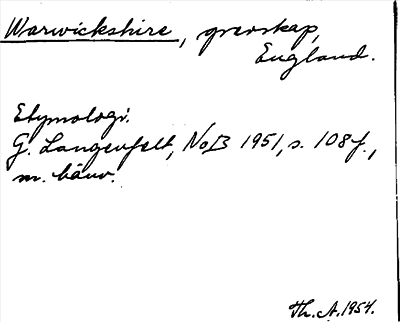 Warwickshire, grevskap,
England.
Etymologi.
G. Langenfelt, NoB 1951, s. 108f.,
m. hänv.
Th. A. 1954.